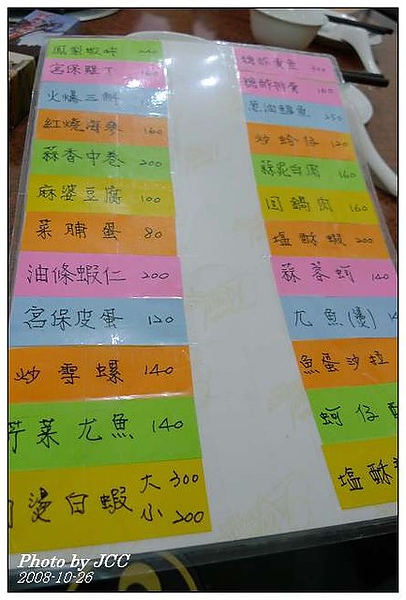 鳳梨蝦球
宮保雞丁 160
火爆三鮮
紅燒海參 160
蒜香中卷 200
麻婆豆腐 100
菜脯蛋 80
油條蝦仁 200
宮保皮蛋 120
炒雪螺 140
芹菜尤魚 140
燙白蝦 大300 小200
糖醋黃魚 300
糖醋排骨 160
蔥油鱈魚 250
炒蛤仔 120
蒜泥白肉 160
回鍋肉 160
塩酥蝦 200
蒜蓉蚵 140
尤魚(燙)
魚蛋沙拉
蚵仔
塩酥
Photo by JCC
2008-10-26